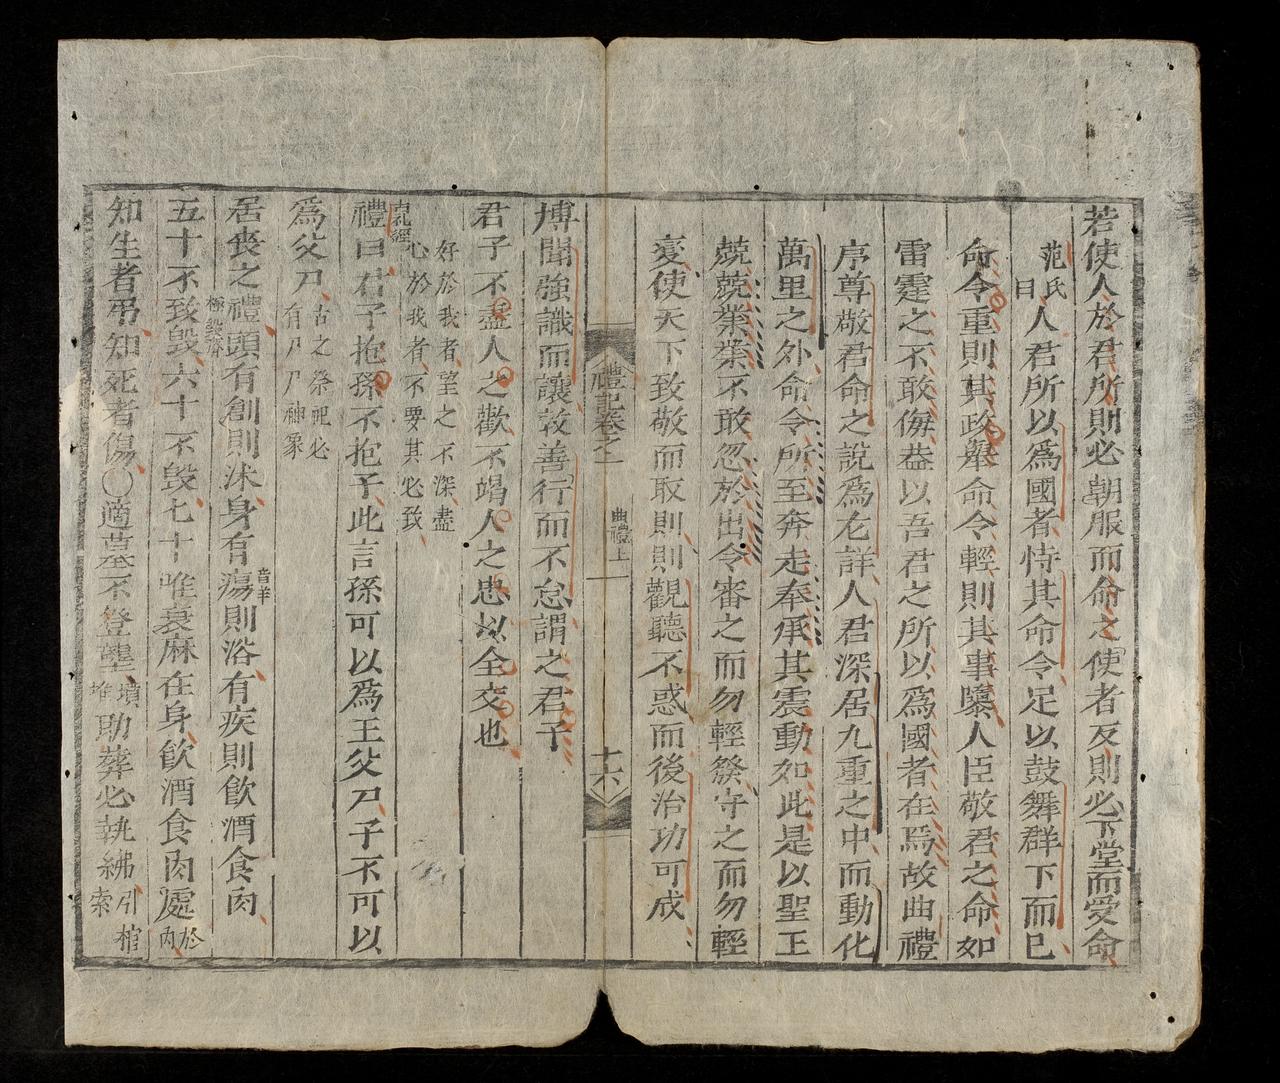 若使人於君所則必朝服而命之使者反則必下堂而受命
范氏曰人君所以爲國者恃其命令足以鼓舞群下而已
命令重則其政舉命令輕則其事隳人臣敬君之命如
雷霆之不敢侮葢以吾君之所以爲國者在焉故曲禮
序尊敬君命之說爲尢詳人君深居九重之中而動化
萬里之外命令所至奔走奉承其震動如此是以聖王
兢兢業業不敢忽於出令審之而勿輕發守之而勿輕
変使天下致敬而取則則觀聽不惑而後治功可成
禮記卷之一 曲禮上 十六
博聞強識而讓敦善行而不怠謂之君子
君子不盡人之歡不竭人之忠以全交也
好於我者望之不深盡
心於我者不要其必致
禮曰君子抱孫不抱子此言孫可以爲王父尸子不可以
爲父尸古之祭祀必有尸尸神象
居喪之禮頭有創則沐身有瘍音羊則浴有疾則飲酒食肉
五十不致極毀六十不毀七十唯衰麻在身飲酒食肉處於內
知生者弔知死者傷〇適墓不登壟墳堆助葬必執紼引棺索